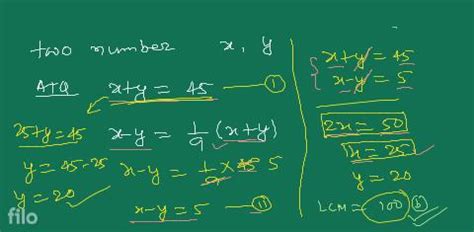 two number x, y
ATQ x+y = 45 — ①
25+y=45
x-y = 1/9 (x+y)
y = 45-25
x-y = 1/9 × 45 5
y = 20
x-y = 5 — ⑪
x+y = 45
x-y = 5
2x = 50
x = 25
y = 20
LCM = 100 ⓑ
filo